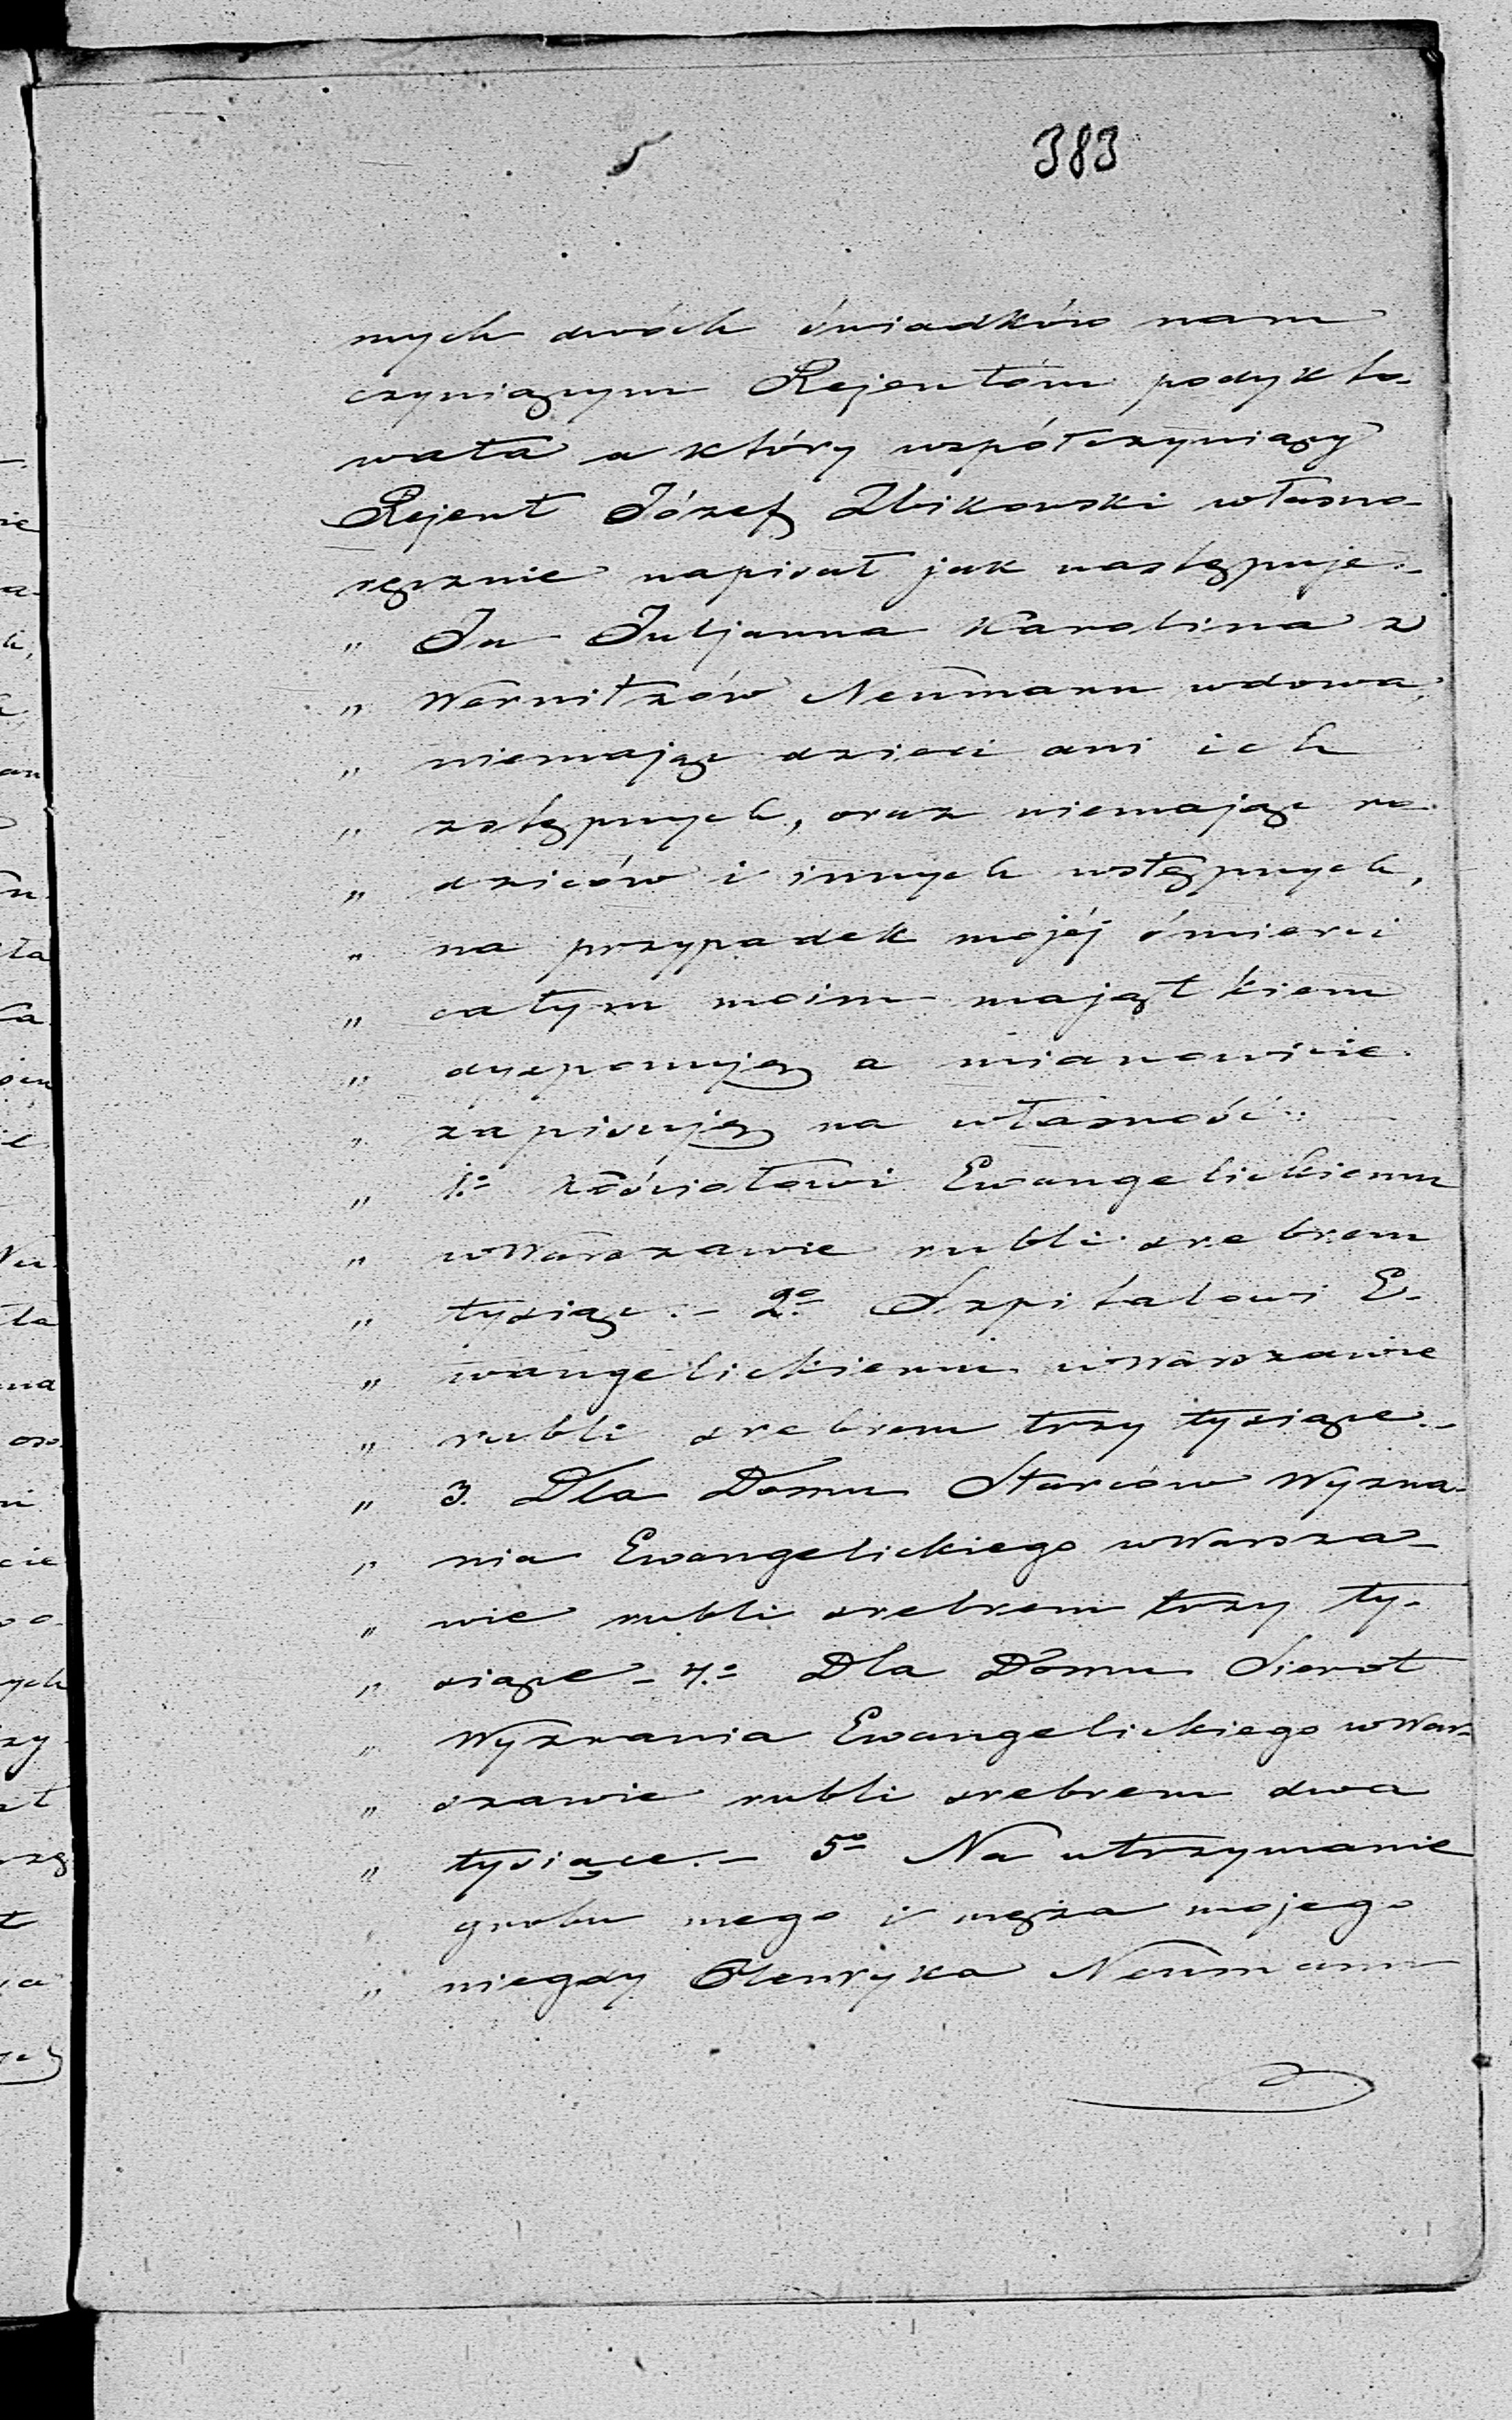 383
mych dwóch świadków nam
czyniącym Rejentom podykto-
wała a który współczyniący
Rejent Józef Zbikowski własno-
ręcznie napisał jak następuje.-
„ Ja Juljanna Karolina z
„ Wernitzów Neumann wdowa,
„ niemając dzieci ani ich
„ zstępnych, oraz niemając ro-
„ dziców i innych wstępnych,
„ na przypadek mojéj śmierci
„ całym moim majątkiem
„ dysponuję a mianowicie
„ zapisuję na własność:
„ 1.o Kościołowi Ewangelickiemu
„ w Warszawie rubli srebrem
„ tysiąc.- 2.o Szpitalowi E-
„ wangelickiemu w Warszawie
„ rubli srebrem trzy tysiące.-
„ 3. Dla Domu Starców Wyzna-
„ nia Ewangelickiego w Warsza-
„ wie rubli srebrem trzy ty-
„ siące - 4.o Dla Domu Sierot
„ Wyznania Ewangelickiego w War-
„ szawie rubli srebrem dwa
„ tysiące.- 5o Na utrzymanie
„ grobu mego i męża mojego
„ niegdy Henryka Neumann